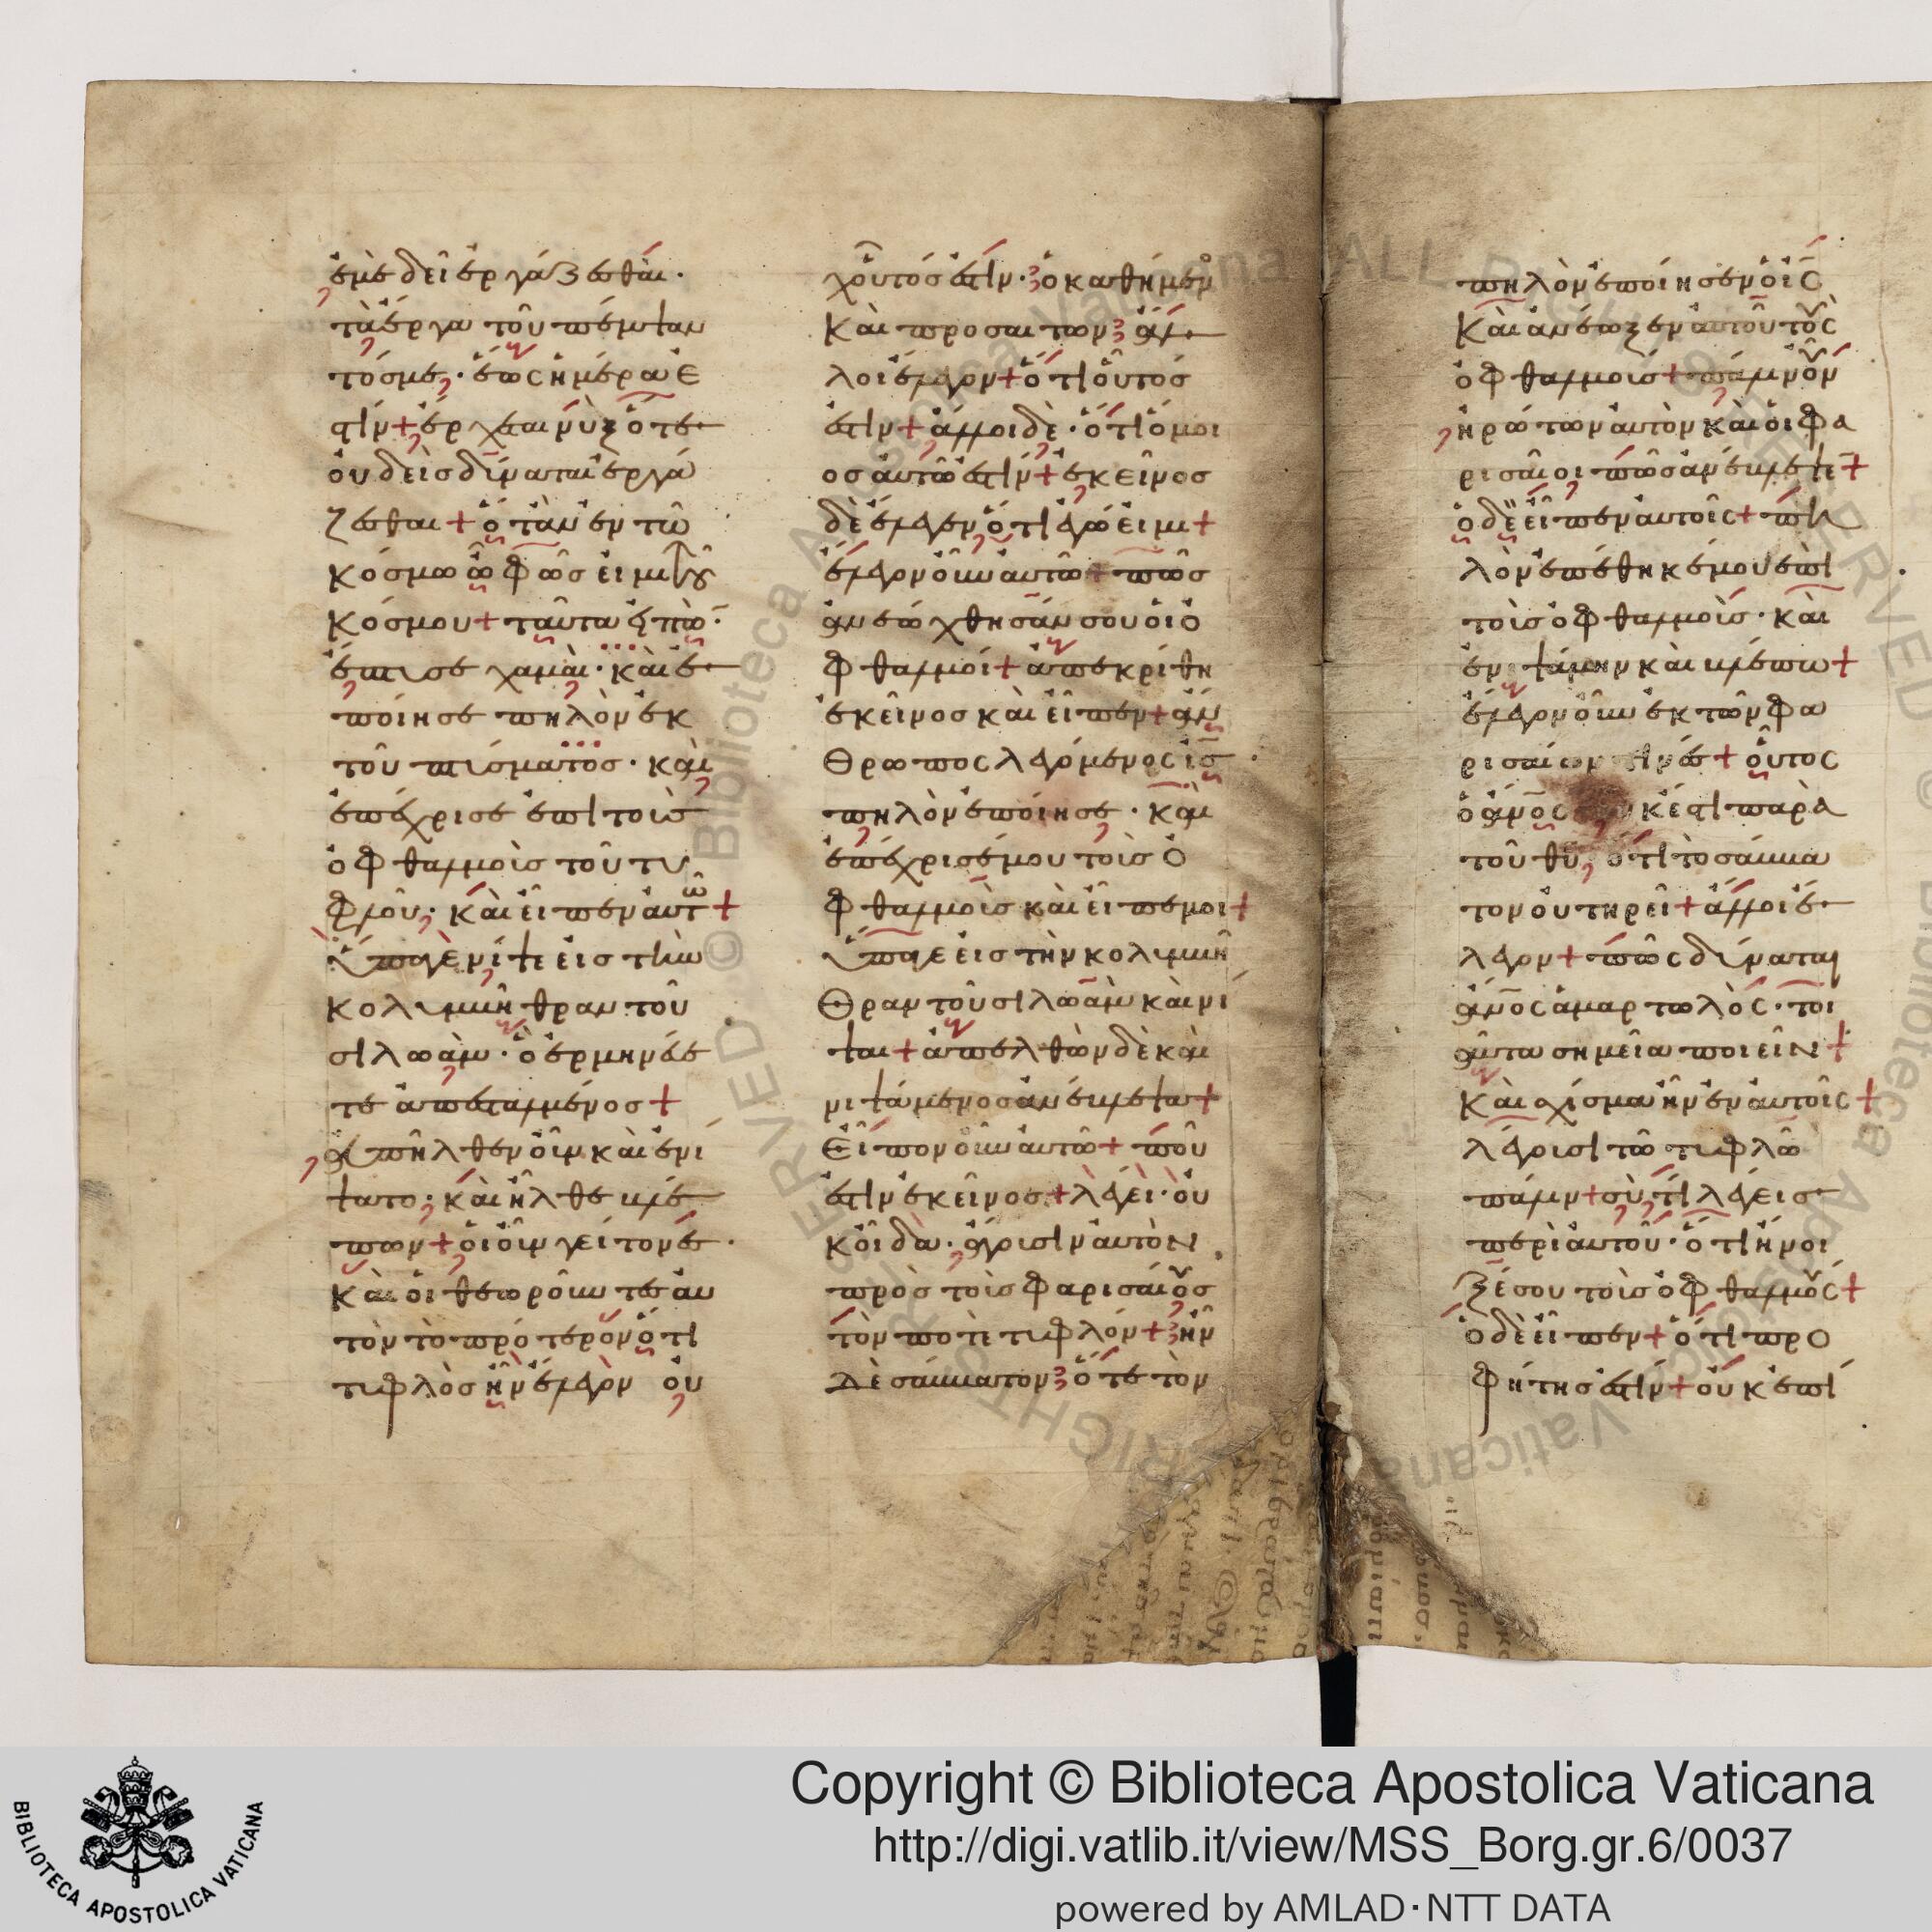 ἐμὲ δεῖ ἐργάζεσθαι·
τὰ ἔργα τοῦ πέμψαν
τός με· ἕως ἡμέρα ἐ
στίν + ἔρχεται νὺξ ὅτε
οὐδεὶς δύναται ἐργά
ζεσθαι + ὅταν ἐν τῶ
κόσμω ὦ φῶς εἰμι τοῦ
κόσμου + ταῦτα εἰπὼν·
ἔπτυσε χαμαὶ· καὶ ἐ
ποίησε πηλὸν ἐκ
τοῦ πτύσματος· καὶ
ἐπέχρισε ἐπὶ τοὺς
ὀφθαλμοὺς τοῦ τυ
φλοῦ· καὶ εἶπεν αὐτῶ +
ὕπαγε νίψαι εἰς τὴν
κολυμβήθραν τοῦ
σιλωὰμ· ὃ ἑρμηνεύε
τε ἀπεσταλμένος +
ἀπῆλθεν οὖν καὶ ἐνί
ψατο· καὶ ἦλθε βλέ
πων + οἱ οὖν γείτονες·
καὶ οἱ θεωροῦντες αὐ
τὸν τὸ πρότερον ὅτι
τυφλὸς ἦν ἔλεγον οὐ
χ οὗτός ἐστιν· ὁ καθήμενος
καὶ προσαιτων ἄλ
λοι ἔλεγον + ὅτι οὗτός
ἐστιν + ἄλλοι δὲ· ὅτι ὅμοι
ος αὐτῶ ἐστίν + ἐκεῖνος
δὲ ἔλεγεν ὅτι ἐγώ εἰμι +
ἔλεγον οὖν αὐτῶ + πῶς
ἀνεώχθησάν σου οἱ ὀ
φθαλμοί + ἀπεκρίθη
ἐκεῖνος καὶ εἶπεν + ἄν
θρωπος λεγόμενος ις
πηλὸν ἐποίησε· καὶ
ἐπέχρισέ μου τοὺς ὀ
φθαλμοὺς καὶ εἶπέ μοι +
ὕπαγε εἰς τὴν κολυμβή
θραν τοῦ σιλωὰμ καὶ νί
ψαι + ἀπελθὼν δὲ καὶ
νιψάμενος ἀνέβλεψα +
Εἶπον οὖν αὐτῶ + ποῦ
ἐστὶν ἐκεῖνος + λέγει· οὐ
κ οἶδα· ἄγουσιν αὐτὸν
πρὸς τοὺς φαρισαίους
τὸν ποτὲ τυφλόν + ἦν
δὲ σάββατον ὅτε τὸν
πηλὸν ἐποίησεν ὁ ις
καὶ ἀνέωξεν αὐτοῦ τοὺς
ὀφθαλμούς + πάλιν οὖν
ἠρώτων αὐτὸν καὶ οἱ φα
ρισαῖοι πῶς ἀνέβλεψε +
ὁ δὲ εἶπεν αὐτοῖς + πη
λὸν ἐπέθηκέ μου ἐπὶ
τοὺς ὀφθαλμούς· καὶ
ἐνιψάμην καὶ βλέπω +
ἔλεγον οὖν ἐκ τῶν φα
ρισαίων τινές + οὗτος
ὁ ἄνος οὐκ ἔστι παρὰ
τοῦ θυ, ὅτι τὸ σάββα
τον οὐ τηρεῖ + ἄλλοι ἔ
λεγον + πῶς δύναται
ἄνος ἁμαρτωλὸς· τοι
αῦτα σημεῖα ποιεῖν +
Καὶ σχίσμα ἦν ἐν αὐτοῖς +
λέγουσι τῶ τυφλῶ
πάλιν + σὺ τί λέγεις
περὶ αὐτοῦ· ὅτι ἤνοι
ξέ σου τοὺς ὀφθαλμούς +
ὁ δὲ εἶπεν + ὅτι προ
φήτης ἐστίν + οὐκ ἐπί
BIBLIOTECA APOSTOLICA VATICANA
Copyright © Biblioteca Apostolica Vaticana
http://digi.vatlib.it/view/MSS_Borg.gr.6/0037
powered by AMLAD·NTT DATA